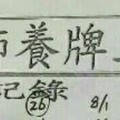 養牌
記錄
26 8/1